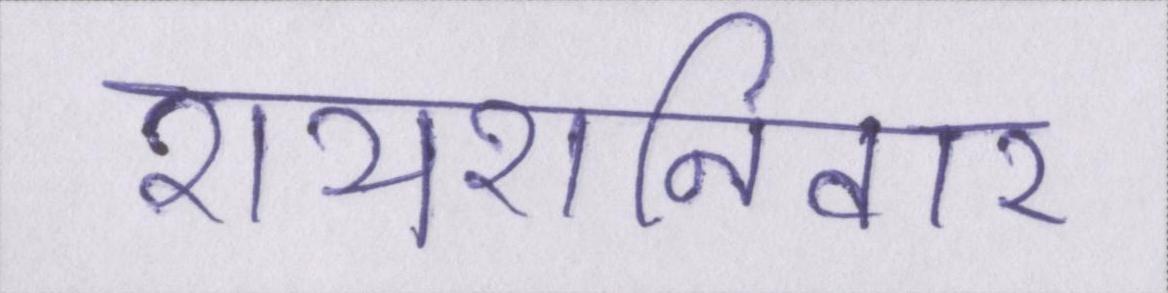 शयशनिवार